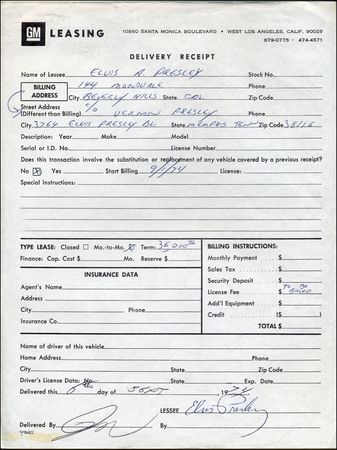 GM LEASING
10860 SANTA MONICA BOULEVARD • WEST LOS ANGELES, CALIF. 90025
879-0775 • 474-4571
DELIVERY RECEIPT
Name of Lessee ELVIS A. PRESLEY Stock No.
BILLING ADDRESS 144 MONOVALE Phone
City BEVERLY HILLS State CAL. Zip Code
Street Address (Different than Billing) % VERNON PRESLEY Phone
City 3764 ELVIS PRESLEY BL State MEMPHIS TENN Zip Code 38116
Description: Year Make Model
Serial or I.D. No. License Number
Does this transaction involve the substitution or replacement of any vehicle covered by a previous receipt?
No Yes Start Billing 9/1/74 License:
Special Instructions:
TYPE LEASE: Closed Mo.-to-Mo. Term: 36,000
Finance: Cap. Cost $ Mo. Reserve $
INSURANCE DATA
Agent's Name
Address
City Phone
Insurance Co.
BILLING INSTRUCTIONS:
Monthly Payment $
Sales Tax $
Security Deposit $
License Fee $ TO BE BILLED
Add'l Equipment $
Credit ($ )
TOTAL $
Name of driver of this vehicle
Home Address Phone
City State Zip Code
Driver's License Data: No. State Exp. Date
Delivered this day of SEPT 1974
LESSEE Elvis Presley
Delivered By